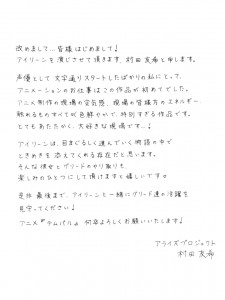 改めまして…皆様はじめまして♩
アイリーンを演じさせて頂きます、村田友希と申します。
声優として文字通りスタートしたばかりの私にとって、
アニメーションのお仕事はこの作品が初めてでした。
アニメ制作の現場の空気感、現場の皆様方のエネルギー、
触れるものすべてが色鮮やかで、特別すぎる作品です。
とてもあたたかく、大好きな現場です…♩
アイリーンは、目まぐるしく進んでいく物語の中で
ときめきを添えてくれる存在だと思います。
そんな彼女とグリードのやり取りも、
楽しみのひとつにして頂けますと嬉しいです。
是非最後まで、アイリーンと一緒にグリード達の活躍を
見守ってください♩
アニメ『テムパル』何卒よろしくお願いいたします♩
アライズプロジェクト
村田友希